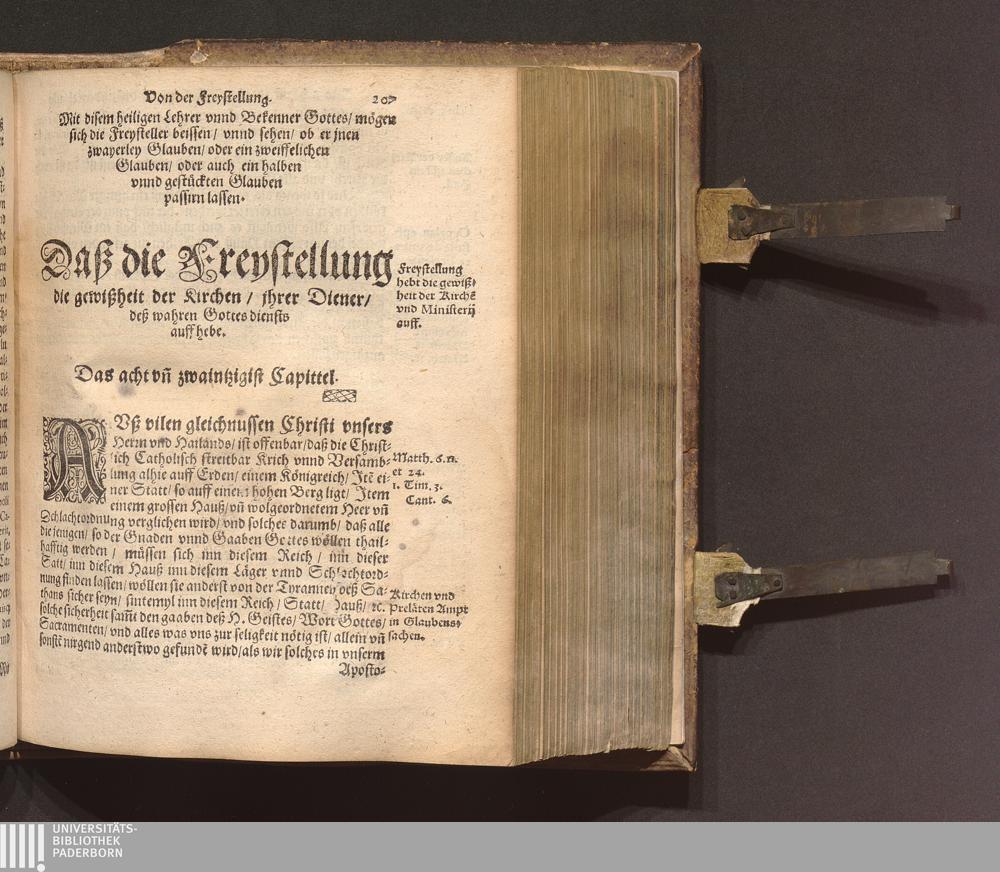 Von der Freystellung. 207
Mit disem heiligen Lehrer vnnd Bekenner Gottes/ mögen
sich die Freysteller beissen/ vnnd sehen/ ob er jnen
zwayerley Glauben/ oder ein zweiffelichen
Glauben/ oder auch ein halben
vnnd gestückten Glauben
passirn lassen.
Daß die Freystellung
die gewißheit der Kirchen/ jhrer Diener/
deß wahren Gottesdiensts
auffhebe.
Freystellung
hebt die gewiß-
heit der Kirchē
vnd Ministerij
auff.
Das acht vñ zwaintzigist Capittel.
AVß vilen gleichnussen Christi vnsers
Herrn vnd Hailands/ ist offenbar/ daß die Christ-
lich Catholisch streitbar Kirch vnnd Versamb-
lung alhie auff Erden/ einem Königreich/ Itē ei-
ner Statt/ so auff einem hohen Berg ligt/ Item
einem grossen Hauß/ vñ wolgeordnetem Heer vñ
Schlachtordnung verglichen wird/ vnd solches darumb/ daß alle
die jenigen/ so der Gnaden vnnd Gaaben Gottes wöllen thail-
hafftig werden/ müssen sich inn diesem Reich/ inn dieser
Satt/ inn diesem Hauß inn diesem Läger vnnd Schlachtord-
nung finden lassen/ wöllen sie anderst von der Tyranney deß Sa-
thans sicher seyn/ sintemyl inn diesem Reich/ Statt/ Hauß/ ꝛc.
solche sicherheit sam̃t den gaaben deß H. Geistes/ Wort Gottes/
Sacramenten/ vnd alles was vns zur seligkeit nötig ist/ allein vñ
sonstē nirgend anderstwo gefundē wird/ als wir solches in vnserm
Aposto-
Matth. 6. n.
et 24.
1. Tim. 3.
Cant. 6.
Kirchen vnd
Prelaten Ampt
in Glaubens-
sachen.
UNIVERSITÄTS-
BIBLIOTHEK
PADERBORN